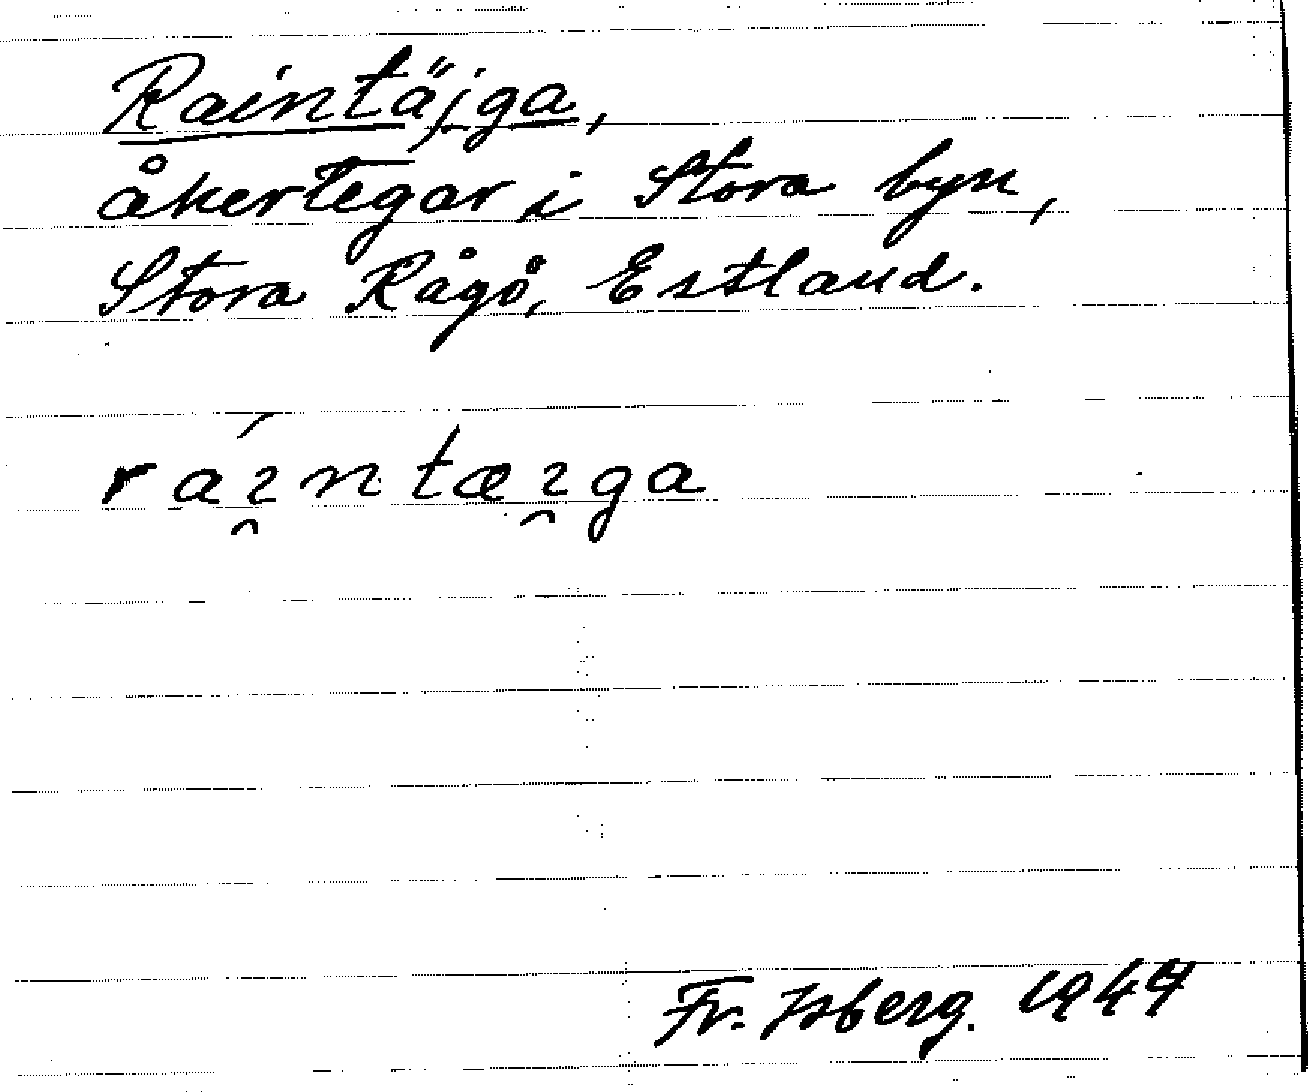 Raintäjga,
åkertegar i Stora byn,
Stora Rågö, Estland.
ráı̯ntæı̯ga
Fr. Isberg. 1947